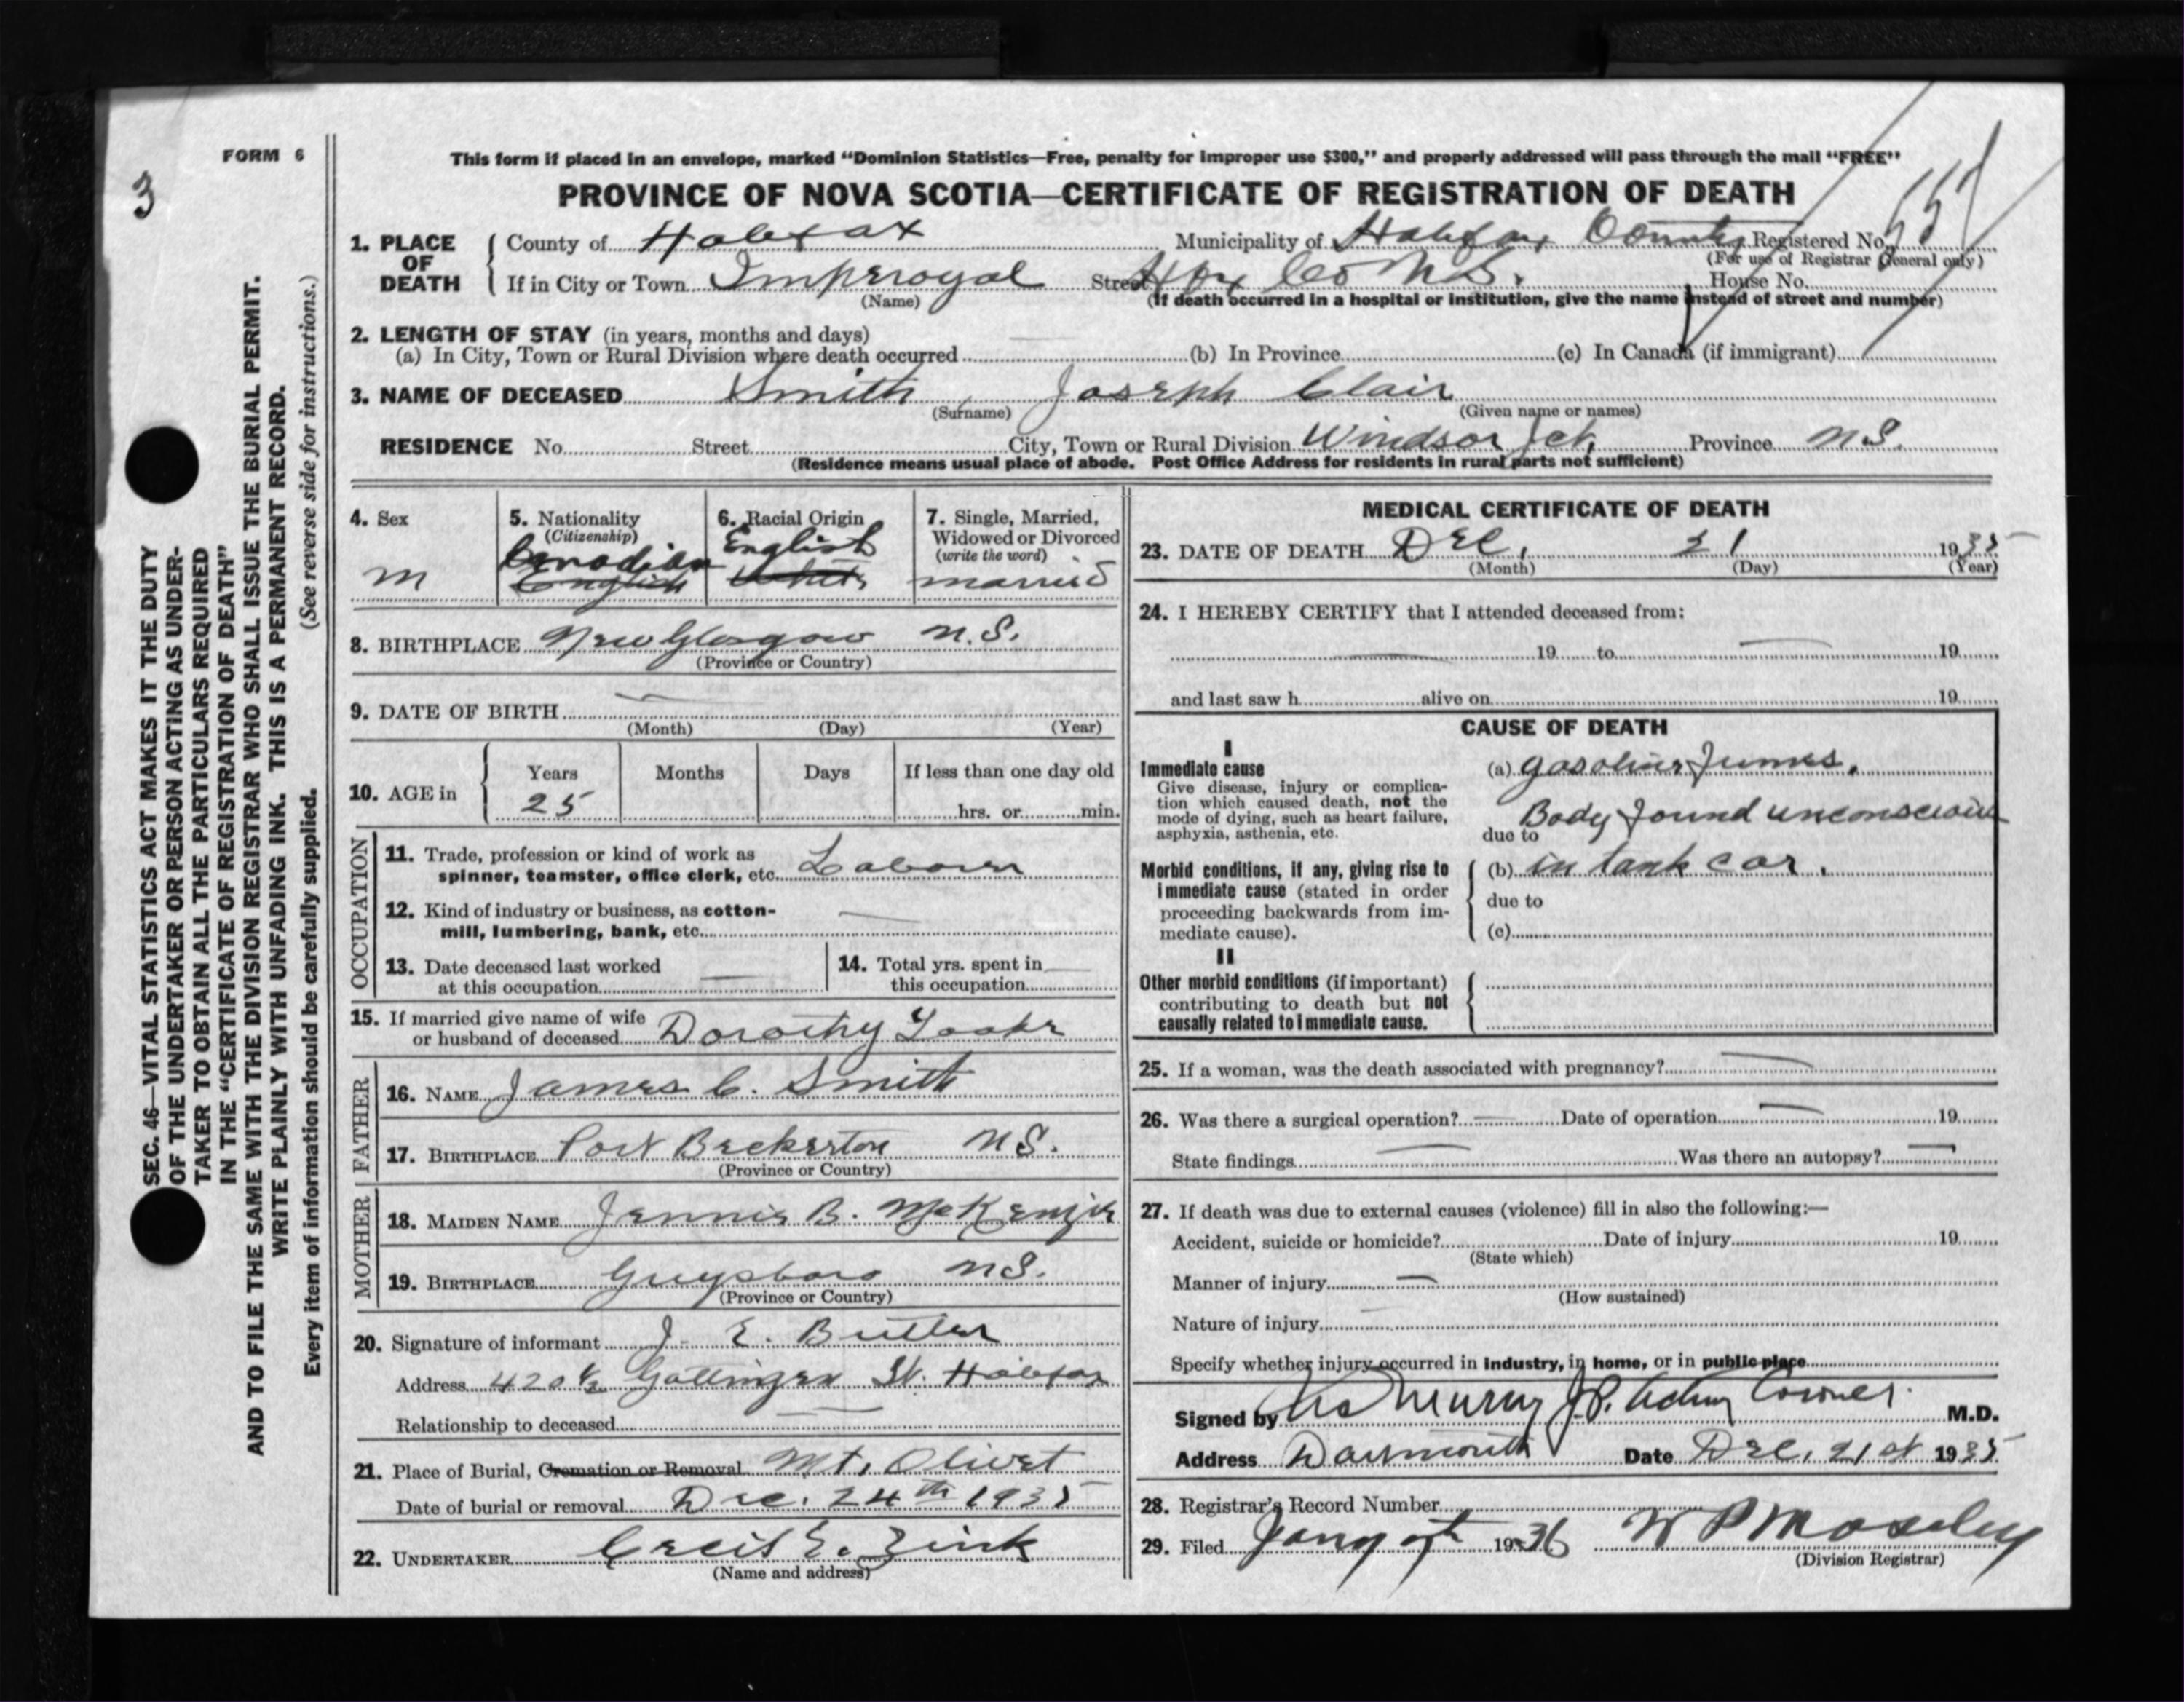 FORM 6
3
SEC. 46—VITAL STATISTICS ACT MAKES IT THE DUTY
OF THE UNDERTAKER OR PERSON ACTING AS UNDER-
TAKER TO OBTAIN ALL THE PARTICULARS REQUIRED
IN THE "CERTIFICATE OF REGISTRATION OF DEATH"
AND TO FILE THE SAME WITH THE DIVISION REGISTRAR WHO SHALL ISSUE THE BURIAL PERMIT.
WRITE PLAINLY WITH UNFADING INK. THIS IS A PERMANENT RECORD.
Every item of information should be carefully supplied. (See reverse side for instructions.)
This form if placed in an envelope, marked "Dominion Statistics—Free, penalty for improper use $300," and properly addressed will pass through the mail "FREE"
PROVINCE OF NOVA SCOTIA—CERTIFICATE OF REGISTRATION OF DEATH
1. PLACE OF DEATH County of Halifax Municipality of Halifax County Registered No.
(For use of Registrar General only)
If in City or Town Imperoyal Street Hfx Co N.S. House No.
(Name) (If death occurred in a hospital or institution, give the name instead of street and number)
2. LENGTH OF STAY (in years, months and days)
(a) In City, Town or Rural Division where death occurred (b) In Province (c) In Canada (if immigrant)
3. NAME OF DECEASED Smith, Joseph Clair
(Surname) (Given name or names)
RESIDENCE No. Street City, Town or Rural Division Windsor Jct. Province N.S.
(Residence means usual place of abode. Post Office Address for residents in rural parts not sufficient)
4. Sex
m
5. Nationality
(Citizenship)
Canadian
English
6. Racial Origin
English
White
7. Single, Married,
Widowed or Divorced
(write the word)
married
8. BIRTHPLACE New Glasgow N.S.
(Province or Country)
9. DATE OF BIRTH
(Month) (Day) (Year)
10. AGE in Years Months Days If less than one day old
25 hrs. or min.
OCCUPATION
11. Trade, profession or kind of work as
spinner, teamster, office clerk, etc. Labourer
12. Kind of industry or business, as cotton-
mill, lumbering, bank, etc.
13. Date deceased last worked
at this occupation
14. Total yrs. spent in
this occupation
15. If married give name of wife
or husband of deceased Dorothy
FATHER
16. NAME James C. Smith
17. BIRTHPLACE Port Beckerton N.S.
(Province or Country)
MOTHER
18. MAIDEN NAME Jennie B. McKenzie
19. BIRTHPLACE Guysboro N.S.
(Province or Country)
20. Signature of informant J. E. Butler
Address 420 ½ Gottingen St. Halifax
Relationship to deceased
21. Place of Burial, Cremation or Removal Mt. Olivet
Date of burial or removal Dec. 24th 1935
22. UNDERTAKER Cecil E. Zink
(Name and address)
MEDICAL CERTIFICATE OF DEATH
23. DATE OF DEATH Dec, 21 1935
(Month) (Day) (Year)
24. I HEREBY CERTIFY that I attended deceased from:
19 to 19
and last saw h alive on 19
CAUSE OF DEATH
I
Immediate cause
Give disease, injury or complica-
tion which caused death, not the
mode of dying, such as heart failure,
asphyxia, asthenia, etc.
(a) gasoline fumes.
Body found unconscious
due to
Morbid conditions, if any, giving rise to
immediate cause (stated in order
proceeding backwards from im-
mediate cause).
(b) in tank car.
due to
(c)
II
Other morbid conditions (if important)
contributing to death but not
causally related to immediate cause.
25. If a woman, was the death associated with pregnancy?
26. Was there a surgical operation? Date of operation 19
State findings Was there an autopsy?
27. If death was due to external causes (violence) fill in also the following:—
Accident, suicide or homicide? Date of injury 19
(State which)
Manner of injury
(How sustained)
Nature of injury
Specify whether injury occurred in industry, in home, or in public place
Signed by Murray J.P. Acting Coroner. M.D.
Address Dartmouth Date Dec. 21st 1935
28. Registrar's Record Number
29. Filed Jany 1936 W P Moseley
(Division Registrar)